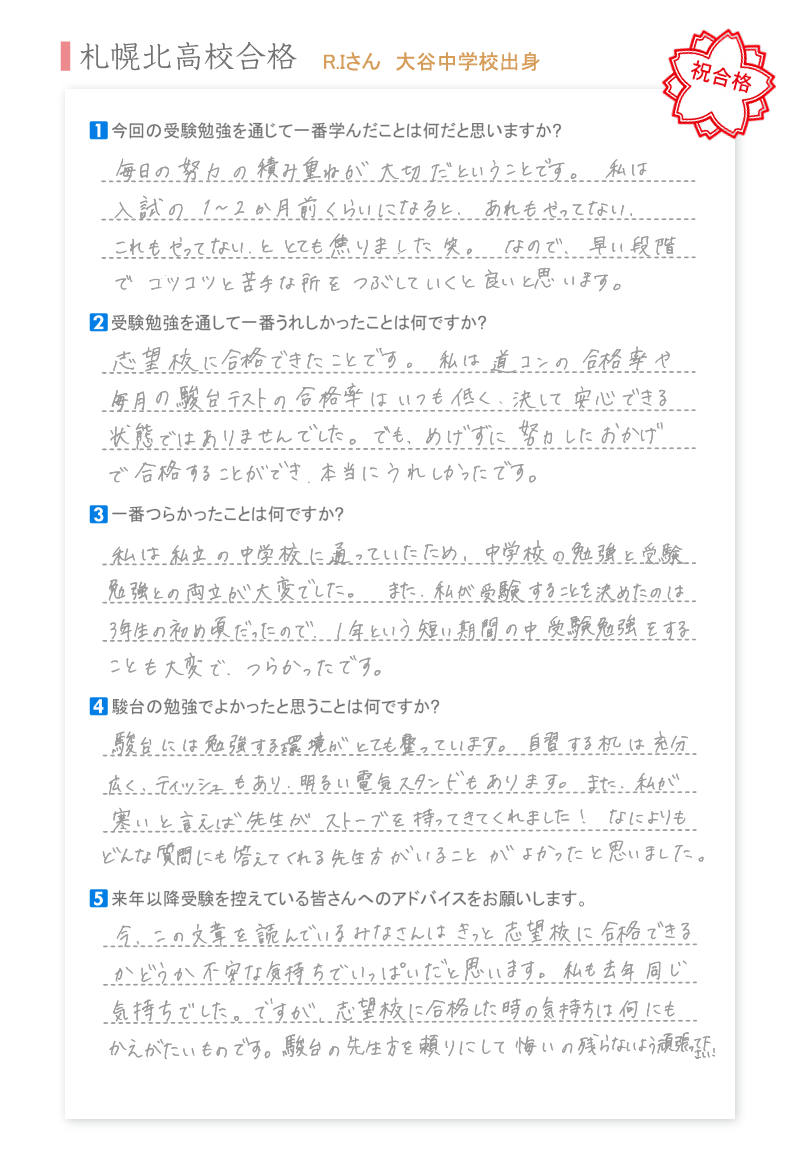 札幌北高校合格
R.Iさん 大谷中学校出身
祝合格
1 今回の受験勉強を通じて一番学んだことは何だと思いますか?
毎日の努力の積み重ねが大切だということです。 私は
入試の1~2か月前くらいになると、あれもやってない、
これもやってない、ととても焦りました笑。 なので、早い段階
でコツコツと苦手な所をつぶしていくと良いと思います。
2 受験勉強を通して一番うれしかったことは何ですか?
志望校に合格できたことです。 私は道コンの合格率や
毎月の駿台テストの合格率はいつも低く、決して安心できる
状態ではありませんでした。でも、めげずに努力したおかげ
で合格することができ、本当にうれしかったです。
3 一番つらかったことは何ですか?
私は私立の中学校に通っていたため、中学校の勉強と受験
勉強との両立が大変でした。 また、私が受験することを決めたのは
3年生の初め頃だったので、1年という短い期間の中受験勉強をする
ことも大変で、つらかったです。
4 駿台の勉強でよかったと思うことは何ですか?
駿台には勉強する環境がとても整っています。 自習する机は充分
広く、ティッシュもあり、明るい電気スタンドもあります。また、私が
寒いと言えば先生がストーブを持ってきてくれました! なによりも
どんな質問にも答えてくれる先生方がいることがよかったと思いました。
5 来年以降受験を控えている皆さんへのアドバイスをお願いします。
今、この文章を読んでいるみなさんはきっと志望校に合格できる
かどうか不安な気持ちでいっぱいだと思います。私も去年同じ
気持ちでした。ですが、志望校に合格した時の気持ちは何にも
かえがたいものです。駿台の先生方を頼りにして悔いの残らないよう頑張って下さい!